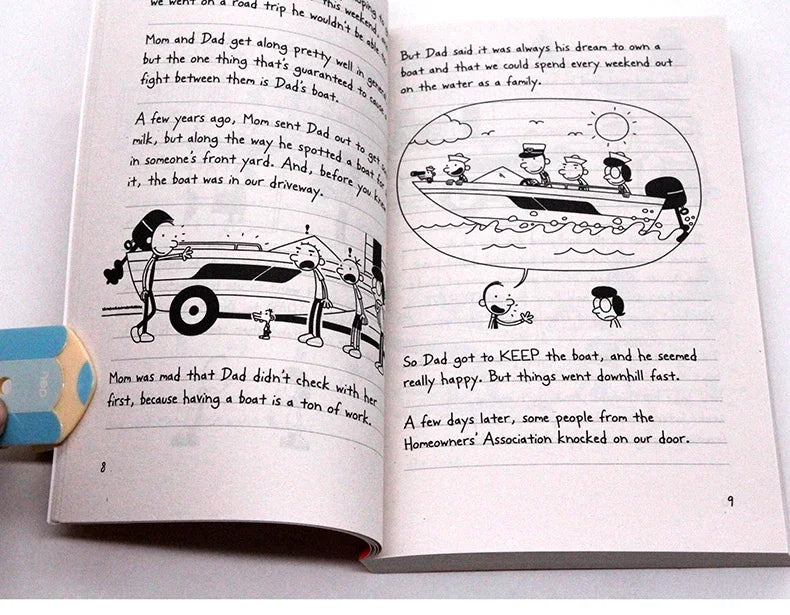 we went on a road trip he wouldn't be able
this weekend,
Mom and Dad get along pretty well in general
but the one thing that's guaranteed to cause a
fight between them is Dad's boat.
A few years ago, Mom sent Dad out to get
milk, but along the way he spotted a boat for
in someone's front yard. And, before you knew
it, the boat was in our driveway.
! !
Mom was mad that Dad didn't check with her
first, because having a boat is a ton of work.
8
But Dad said it was always his dream to own a
boat and that we could spend every weekend out
on the water as a family.
So Dad got to KEEP the boat, and he seemed
really happy. But things went downhill fast.
A few days later, some people from the
Homeowners' Association knocked on our door.
9
deli